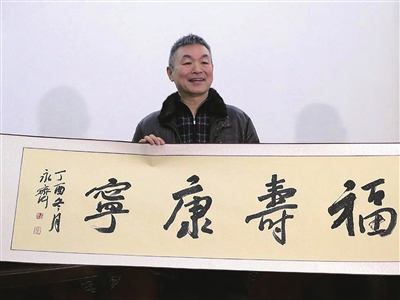 福壽康寧
丁酉冬月
永